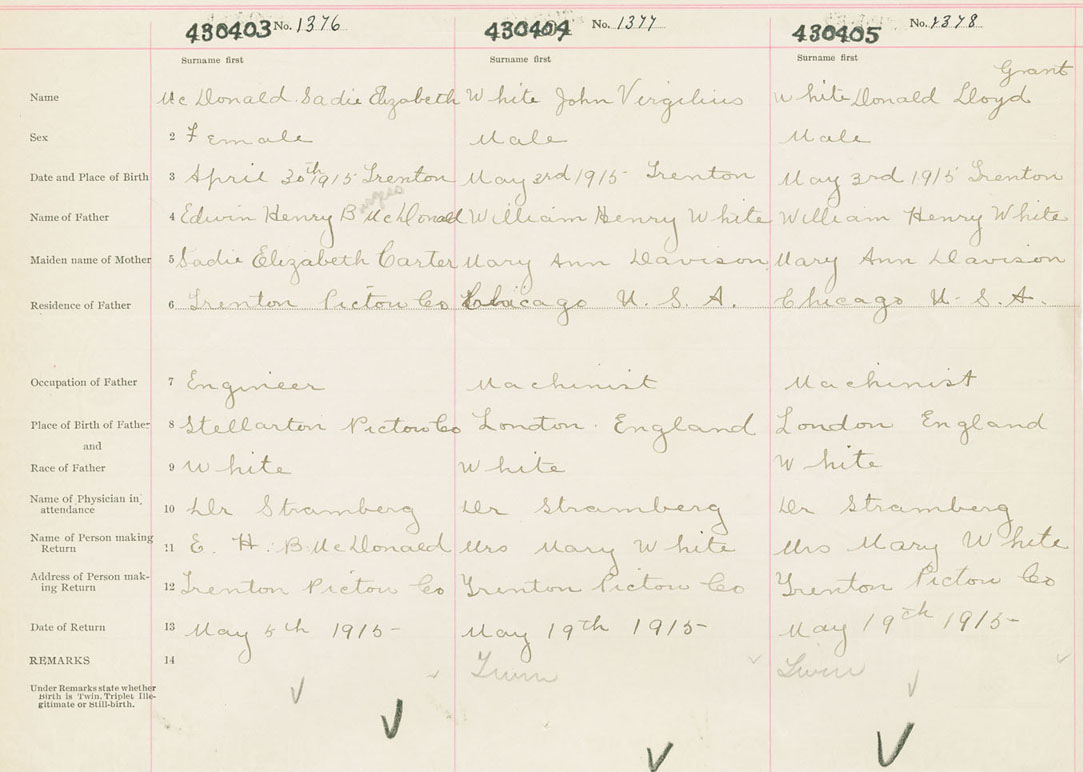 430403 No. 1376 430404 No. 1377 430405 No. 1378
Surname first Surname first Surname first
Grant
Name Mc Donald Sadie Elizabeth White John Virgilius White Donald Lloyd
Sex 2 Female Male Male
Date and Place of Birth 3 April 20th 1915 Trenton May 3rd 1915 Trenton May 3rd 1915 Trenton
Name of Father 4 Edwin Henry B McDonald William Henry White William Henry White
Maiden name of Mother 5 Sadie Elizabeth Carter Mary Ann Davison Mary Ann Davison
Residence of Father 6 Trenton Pictou Co Chicago U. S. A. Chicago U. S. A.
Occupation of Father 7 Engineer Machinist Machinist
Place of Birth of Father 8 Stellarton Pictou Co London England London England
and
Race of Father 9 White White White
Name of Physician in
attendance 10 Dr Stramberg Dr Stramberg Dr Stramberg
Name of Person making
Return 11 E. H. B McDonald Mrs Mary White Mrs Mary White
Address of Person mak-
ing Return 12 Trenton Pictou Co Trenton Pictou Co Trenton Pictou Co
Date of Return 13 May 5th 1915 May 19th 1915 May 19th 1915
REMARKS 14 Twin Twin
Under Remarks state whether
Birth is Twin, Triplet Ille-
gitimate or Still-birth.